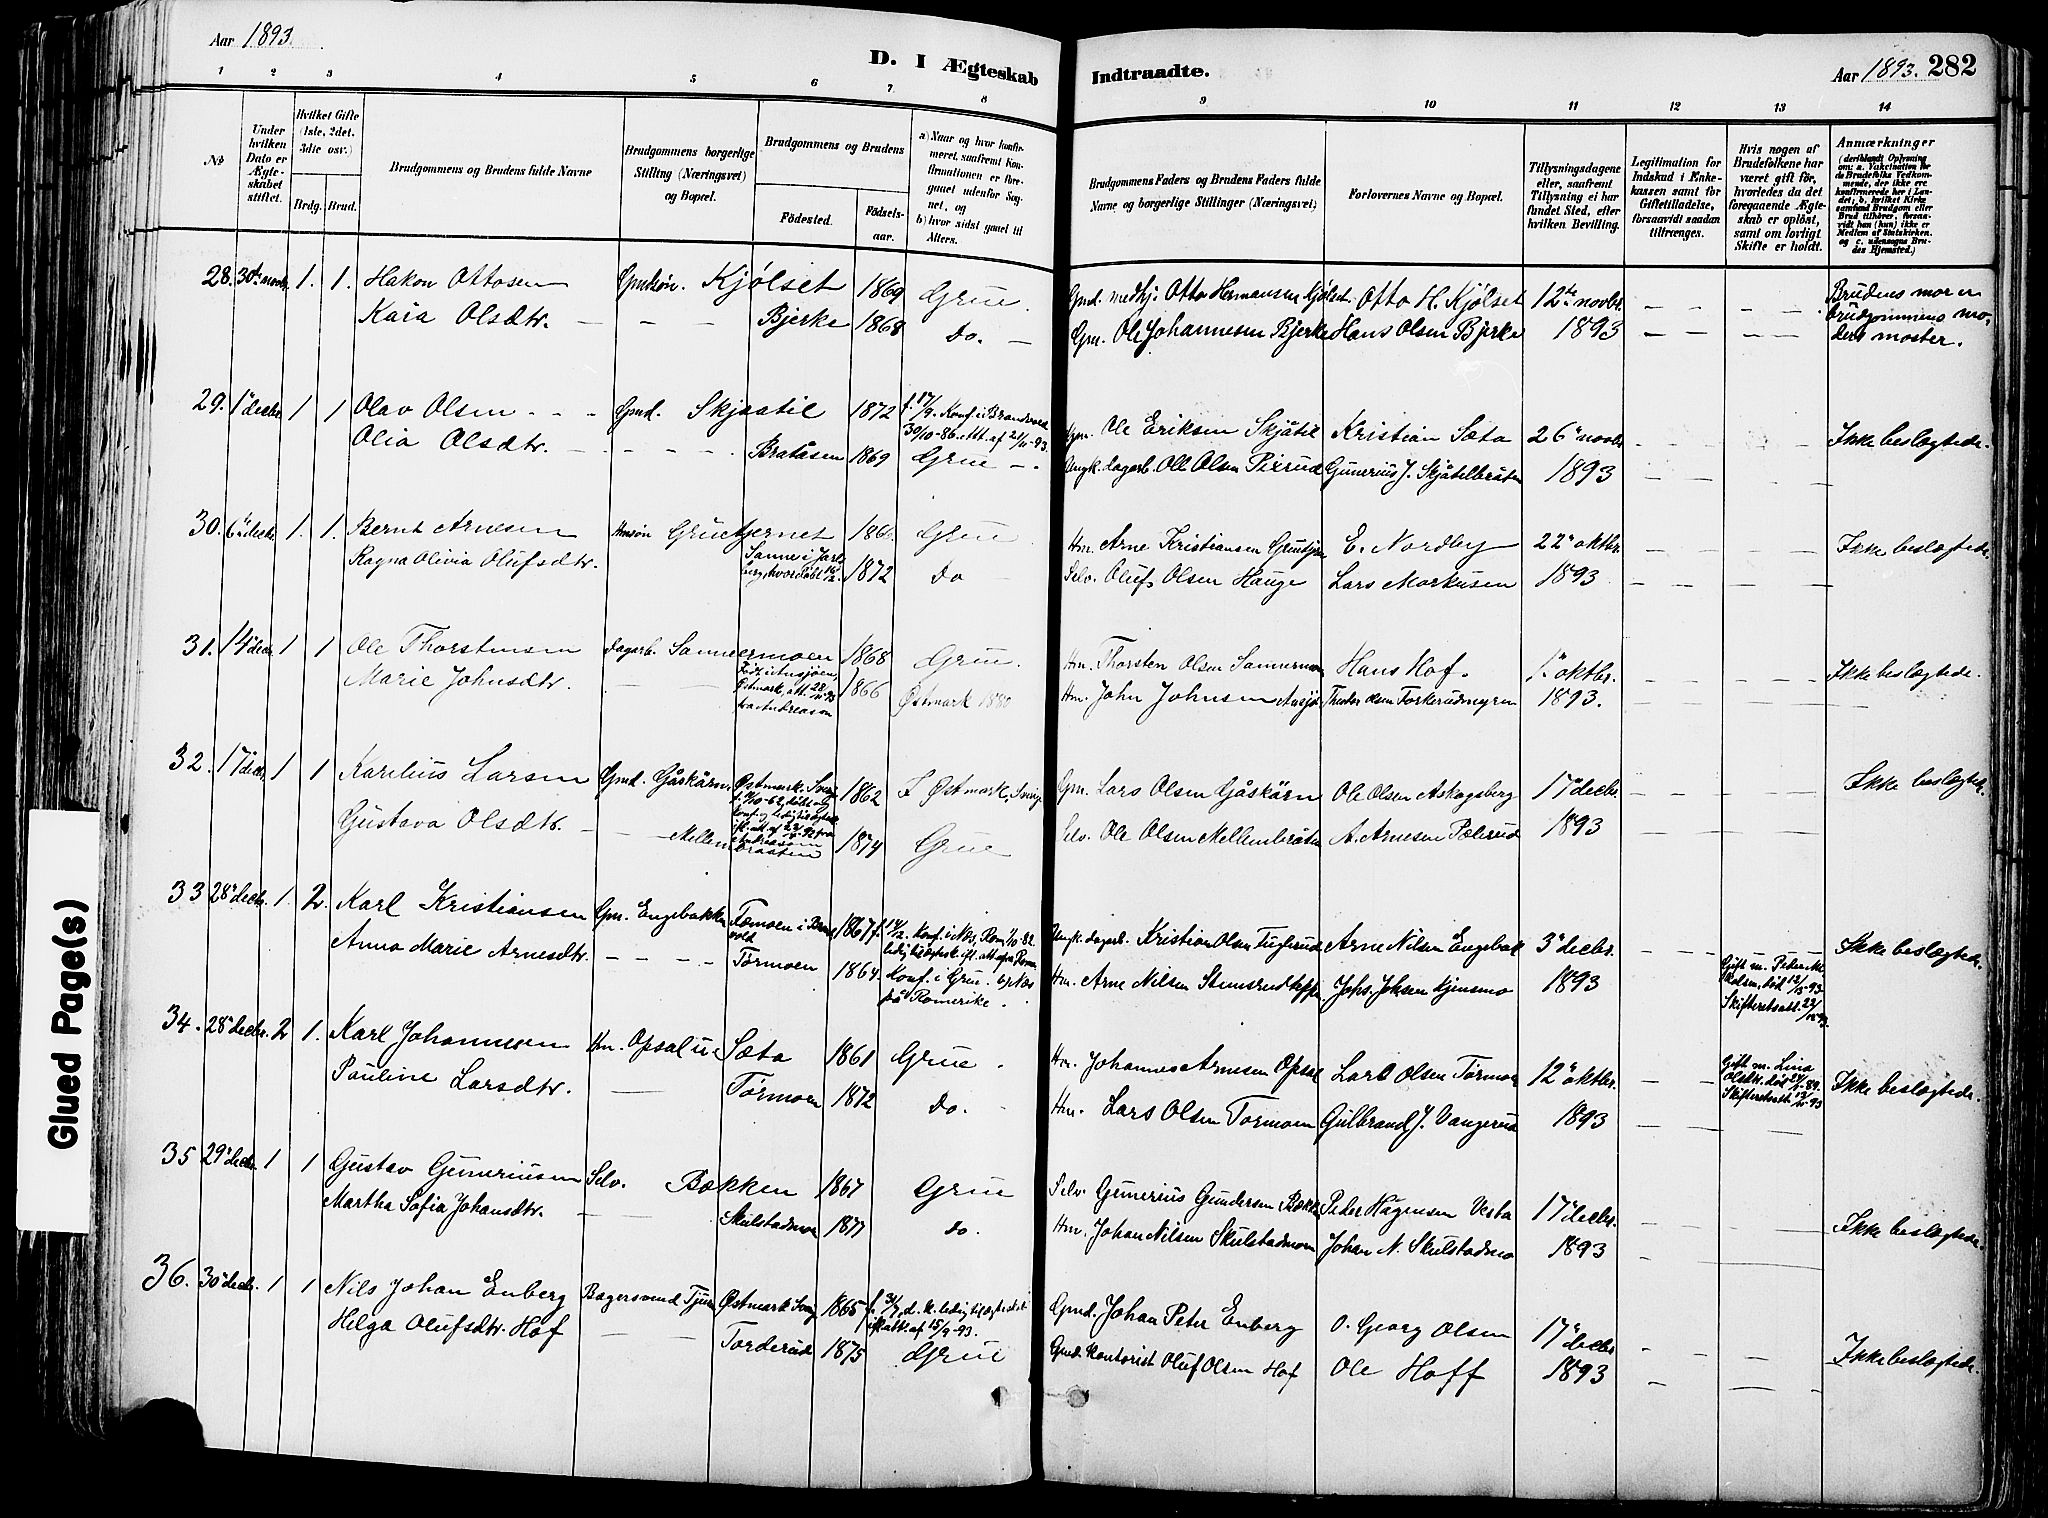 Aar 1893.
D. I Ægteskab Indtraadte.
Aar 1893. 282
1 2 3 4 5 6 7 8 9 10 11 12 13 14
No
Under hvilken Dato er Ægteskabet stiftet.
Hvilket Gifte (1ste, 2det, 3die osv.)
Brdg. Brud.
Brudgommens og Brudens fulde Navne
Brudgommens borgerlige Stilling (Næringsvei) og Bopæl.
Brudgommens og Brudens
Fødested.
Fødselsaar.
a) Naar og hvor konfirmeret, saafremt Konfirmationen er foregaaet udenfor Sognet, og
b) hvor sidst gaaet til Alters.
Brudgommens Faders og Brudens Faders fulde Navne og borgerlige Stillinger (Næringsvei)
Forlovernes Navne og Bopæl.
Tillysningsdagene eller, saafremt Tillysning ei har fundet Sted, efter hvilken Bevilling.
Legitimation for Indskud i Enkekassen samt for Giftetilladelse, forsaavidt saadan tiltrænges.
Hvis nogen af Brudefolkene har været gift før, hvorledes da det foregaaende Ægteskab er opløst, samt om lovligt Skifte er holdt.
Anmærkninger
(deriblandt Oplysning om: a. Vakcination for de Brudefolks Vedkommende, der ikke ere konfirmerede her i Landet; b. hvilket Kirkesamfund Brudgom eller Brud tilhører, forsaavidt han (hun) ikke er Medlem af Statskirken. og c. udensogns Brudes Hjemsted.)
28. 30te novbr. 1. 1. Hakon Ottosen Gmdsøn. Kjølset 1869 Grue. Gmd. medhj. Otto Hermansen Kjølset Otto H. Kjølset 12te novbr. Brudens mor er brudgommens moders moster.
Kaia Olsdtr. Bjerke 1868 Do. Gm. Ole Johannesen Bjerke Hans Olsen Bjerke 1893
29. 1 decbr. 1 1 Olav Olsen Gmd. Skjaatil 1872 f. 17/9. Konf. i Brandvold 30/10-86. Att. af 21/11-93. Gm. Ole Eriksen Skjåtil Kristian Sæta 26 novbr. Ikke beslægtede.
Olia Olsdtr. Bratåsen 1869 Grue Ungk. dagarb. Ole Olsen Pixrud Gunerius J. Skjåtilbråten 1893
30. 6 decbr. 1. 1. Bernt Arnesen Hmsøn Gruetjernet 186 Grue Hm. Arne Kristiansen Gruetjern E. Nordby 22 oktbr. Ikke beslægtede.
Ragna Olivia Olufsdtr. Sanne i Jarlsberg, hvor døbt 1872 Do Selv. Olufs Olsen Hauge Lars Markusen 1893
31. 14 decbr. 1 1 Ole Thorstensen dagarb. Sannermoen 1868 Grue. Hm. Thorsten Olsen Sannermoen Hans Hof. 1 oktbr. Ikke beslægtede.
Marie Johnsdtr. Østmark, att. fra Andreason 1866 Østmark 1880 Hm. John Johnsen Aasjö Theodor Olsen Torkerudmyren 1893.
32. 17 decbr. 1 1 Karelius Larsen Gmd. Gåskärn Østmark. Sverige 1862 I Østmark, Sverige Gm. Lars Olsen Gåskärn Ole Olsen Askogsberg 17 decbr. Ikke beslægtede.
Gustava Olsdtr. Mellembraaten 1874 Grue Selv. Ole Olsen Mellembråten A. Arnesen Pælerud 1893
33 28 decbr. 1. 2. Karl Kristiansen Gm. Engebakken Tæmoen i Brandvold 1867 f. 14/2. Konf. i Nes, Rom. Ungk. dagarb. Kristian Olsen Tuglerud Arne Nilsen Engebak 3 decbr. Ikke beslægtede.
Anna Marie Arnesdtr. Tørmoen 1864. Konf. i Grue. på Romerike. Hm. Arne Nilsen Stemsrud Johs. Johsen Kjensmo 1893 Gift m. Peder
34. 28 decbr. 2 1. Karl Johannesen Hm. Opsal u. Sæta 1861 Grue. Hm. Johannes Arnesen Opsal Lars Olsen Tørmoen 12 oktbr. Gift m. Lina Olsdtr. Ikke beslægtede.
Pauline Larsdtr. Tørmoen 1872 Do. Hm. Lars Olsen Tormoen Gulbrand J. Vangerud 1893
35 29 decbr. 1 1 Gustav Guneriusen Selv. Bækken 1867 Grue Selv. Gunerius Gundersen Bækken Peder Hagensen Vesta 17 decbr. Ikke beslægtede.
Martha Sofia Johansdtr. Skulstadmoen 1877 do. Hm. Johan Nilsen Skulstadmoen Johan N. Skulstadmo 1893
36. 30 decbr. 1 1 Nils Johan Enberg Bagersvend Tjura Østmark Sverig 1865 f. 31/7, d. k. ledig til ægteskab ifl. att. af 15/9-93. Gmd. Johan Peter Enberg O. Georg Olsen 17 decbr. Ikke beslægtede.
Helga Olufsdtr. Hof Torderud 1875 Grue Gmd. Kontorist Oluf Olsen Hof Ole Hoff 1893
Glued Page(s)